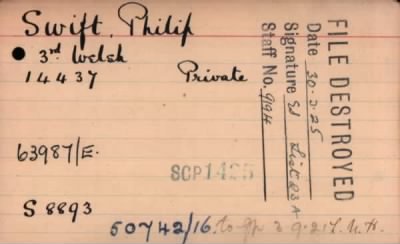 Swift, Philip
3rd Welsh
14437 Private
63987/E.
SCP1425
S 8893
50742/16. to
FILE DESTROYED
Date 30.2.25
Signature
Staff No. 9194